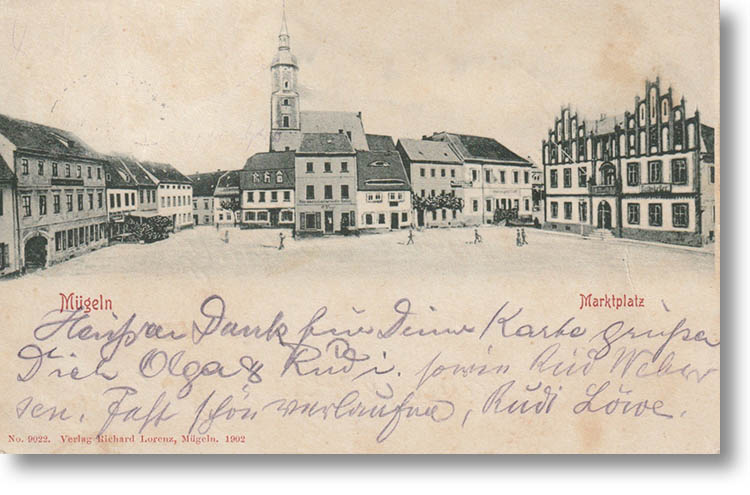 Mügeln
Marktplatz
Heißen Dank für Deine Karte grüßen
Dich Olga & Rudi. sowie Rud Weber
sen. Fast schön verlaufen, Rudi Löwe.
No. 9022. Verlag Richard Lorenz, Mügeln. 1902